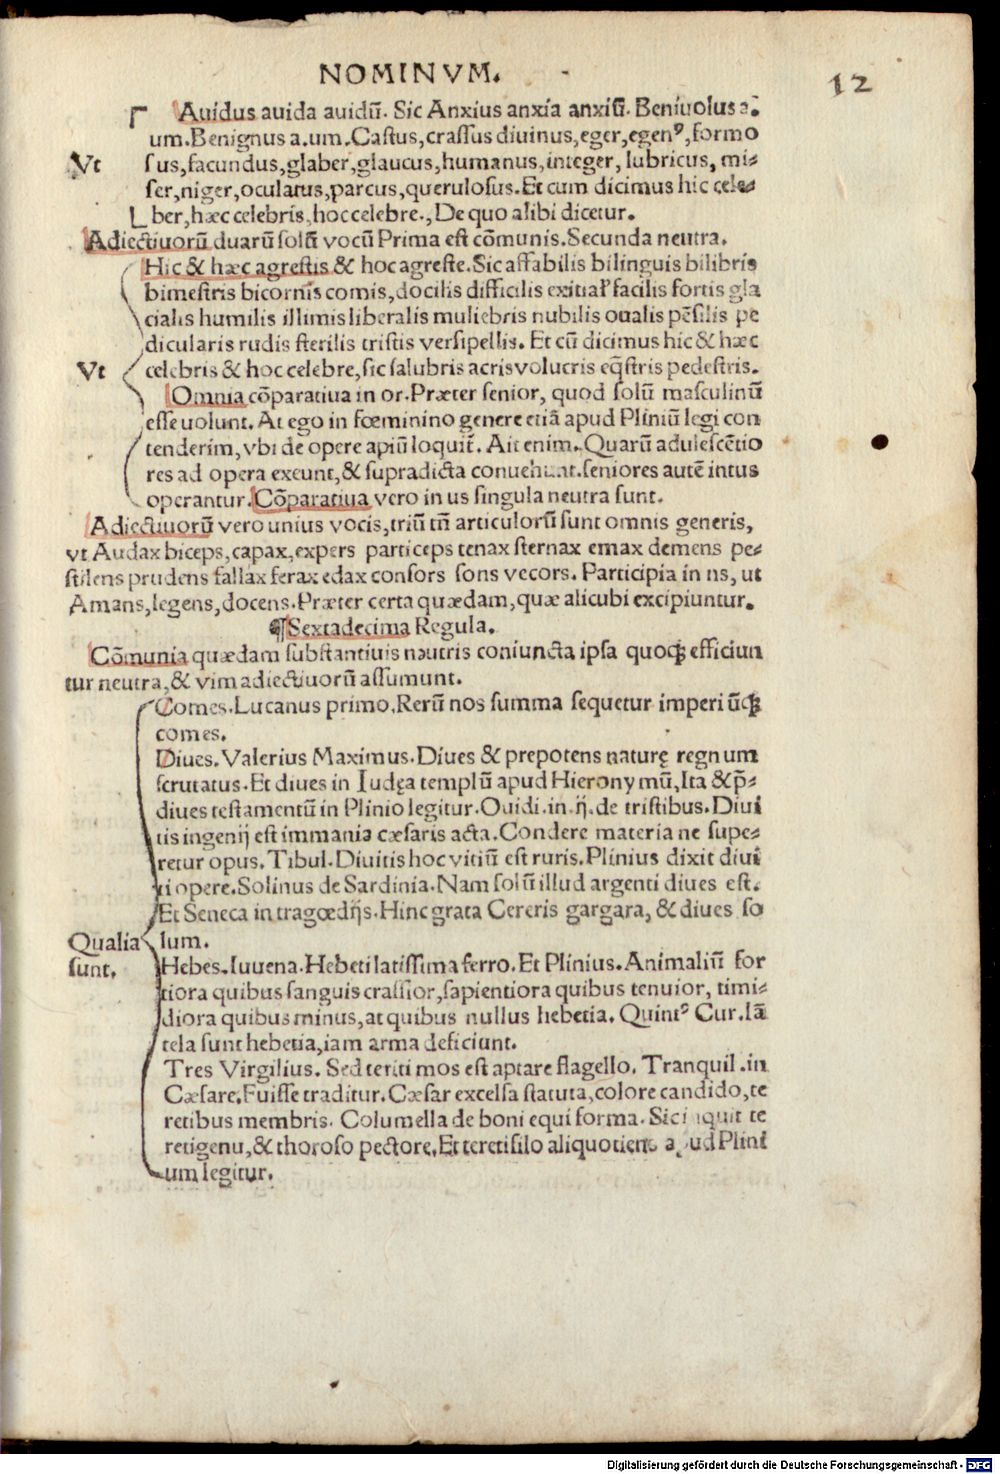 NOMINVM.
12
Auidus auida auidū. Sic Anxius anxia anxiū. Beniuolus a.
um. Benignus a.um. Castus, crassus diuinus, eger, egenꝰ, formo
Vt
sus, facundus, glaber, glaucus, humanus, integer, lubricus, mi-
ser, niger, oculatus, parcus, querulosus. Et cum dicimus hic cele-
ber, hæc celebris, hoc celebre., De quo alibi dicetur.
Adiectiuorū duarū solū vocū Prima est cōmunis. Secunda neutra.
Hic & hæc agrestis & hoc agreste. Sic affabilis bilinguis bilibris
bimestris bicornis comis, docilis difficilis exitial' facilis fortis gla
cialis humilis illimis liberalis muliebris nubilis oualis pēsilis pe
dicularis rudis sterilis tristis versipellis. Et cū dicimus hic & hæc
Vt
celebris & hoc celebre, sic salubris acris volucris eq̄stris pedestris.
Omnia cōparatiua in or. Præter senior, quod solū masculinū
esse uolunt. At ego in fœminino genere etiā apud Pliniū legi con
tenderim, vbi de opere apiū loquit̄. Ait enim. Quarū adulescētio
res ad opera exeunt, & supradicta conuehunt. seniores autē intus
operantur. Cōparatiua vero in us singula neutra sunt.
Adiectiuorū vero unius vocis, triū tn̄ articulorū sunt omnis generis,
vt Audax biceps, capax, expers particeps tenax sternax emax demens pe-
stilens prudens fallax ferax edax consors sons vecors. Participia in ns, ut
Amans, legens, docens. Præter certa quædam, quæ alicubi excipiuntur.
¶ Sextadecima Regula.
Cōmunia quædam substantiuis neutris coniuncta ipsa quoqꝫ efficiun
tur neutra, & vim adiectiuorū assumunt.
Comes. Lucanus primo. Rerū nos summa sequetur imperiūqꝫ
comes.
Diues. Valerius Maximus. Diues & prepotens naturę regnum
scrutatus. Et diues in Iudęa templū apud Hieronymū, Ita & p̄-
diues testamentū in Plinio legitur. Ouidi. in. ij. de tristibus. Diui
tis ingenij est immania cæsaris acta. Condere materia ne supe-
retur opus. Tibul. Diuitis hoc vitiū est ruris. Plinius dixit diui
ti opere. Solinus de Sardinia. Nam solū illud argenti diues est.
Et Seneca in tragœdijs. Hinc grata Cereris gargara, & diues so
Qualia
lum.
sunt.
Hebes. Iuuena. Hebeti latissima ferro. Et Plinius. Animaliū for
tiora quibus sanguis crassior, sapientiora quibus tenuior, timi-
diora quibus minus, at quibus nullus hebetia. Quintꝰ Cur. Iā
tela sunt hebetia, iam arma deficiunt.
Tres Virgilius. Sed teriti mos est aptare flagello. Tranquil. in
Cæsare. Fuisse traditur. Cæsar excelsa statuta, colore candido, te
retibus membris. Columella de boni equi forma. Sic inquit te
reti genu, & thoroso pectore. Et tereti silo aliquotiens apud Plini
um legitur.
Digitalisierung gefördert durch die Deutsche Forschungsgemeinschaft - DFG